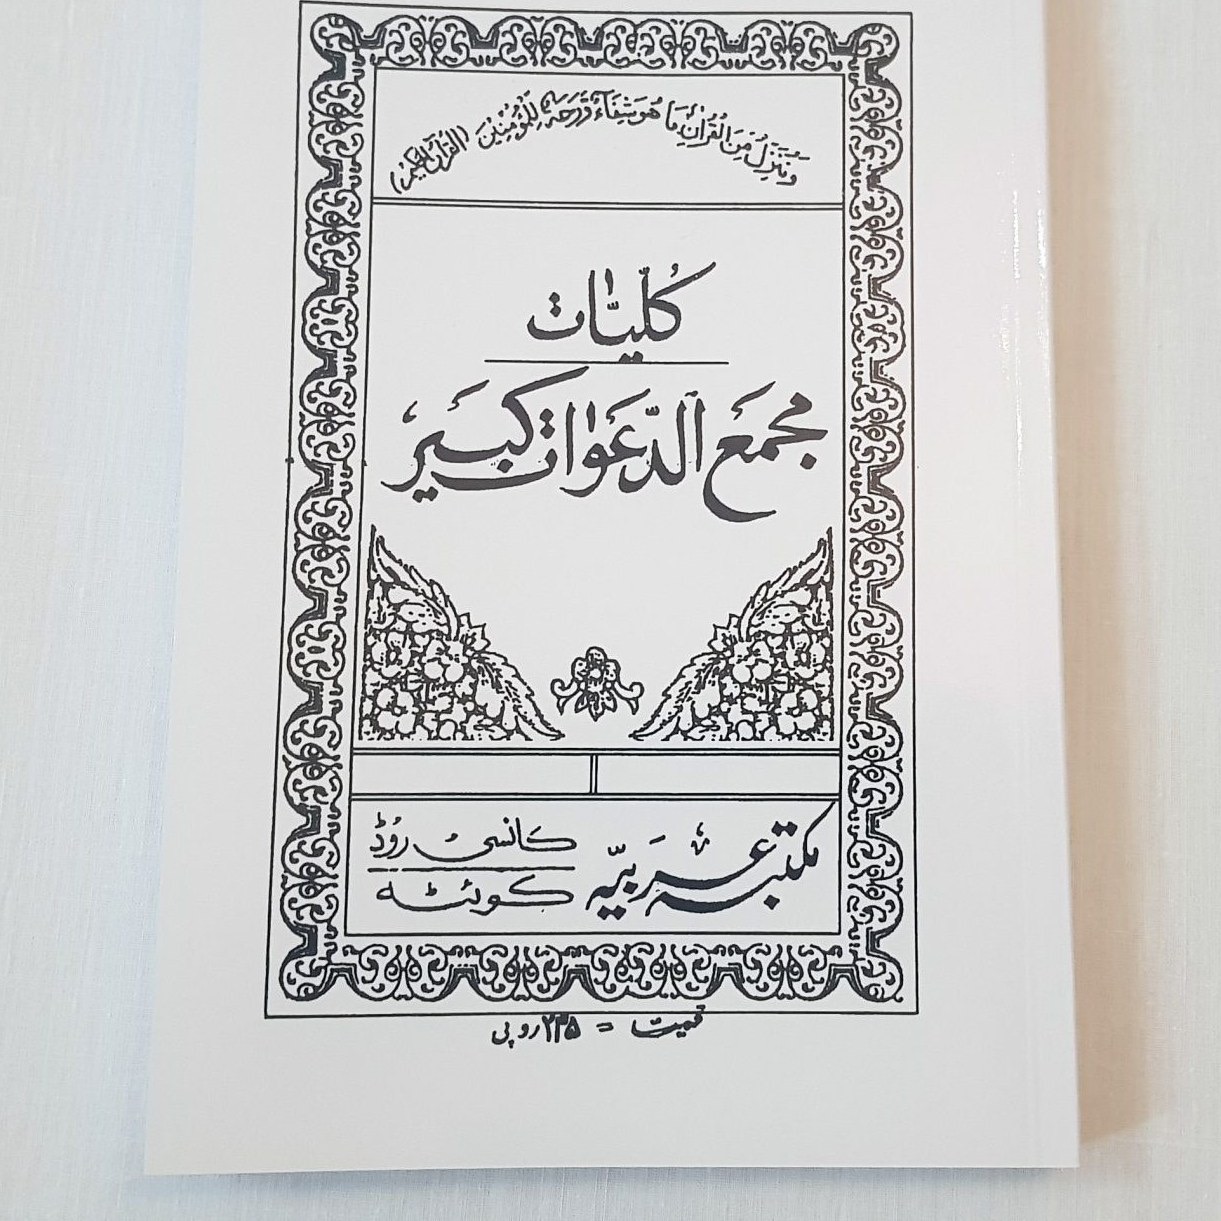 وَنُنَزِّلُ مِنَ الْقُرْاٰنِ مَا هُوَ شِفَآءٌ وَّرَحْمَةٌ لِّلْمُؤْمِنِيْنَ (القرآن الحكيم)
كُلِّيَّات
مجمَعَ الدَّعَوَات كبَير
مکتبہ عَربیّہ
کانسیُ روُڈ
کوئٹہ
قیمت = ۲۳۵ روپی